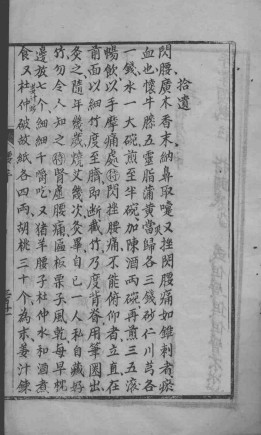 拾遺
閃腰廣木香末納鼻取嚏又挫閃腰痛如錐刺者瘀
血也懷牛膝五靈脂蒲黃當歸各三錢砂仁川芎各
一錢水一大碗煎至半碗加陳酒兩碗再煎三五滾
暢飲以手摩痛處 閃挫腰痛不能俯仰者立直在
前面以細竹度至臍即斷截竹乃度背脊用筆圈出
灸之隨年幾歲燒艾幾次灸畢自己一人私自藏好
竹勿令人知之 腎虛腰痛區板栗子風乾每早枕
邊放七个細細干嚼吃又猪羊腰子杜仲水和酒煮
食又杜仲破故紙各四兩胡桃三十个為末姜汁鍊